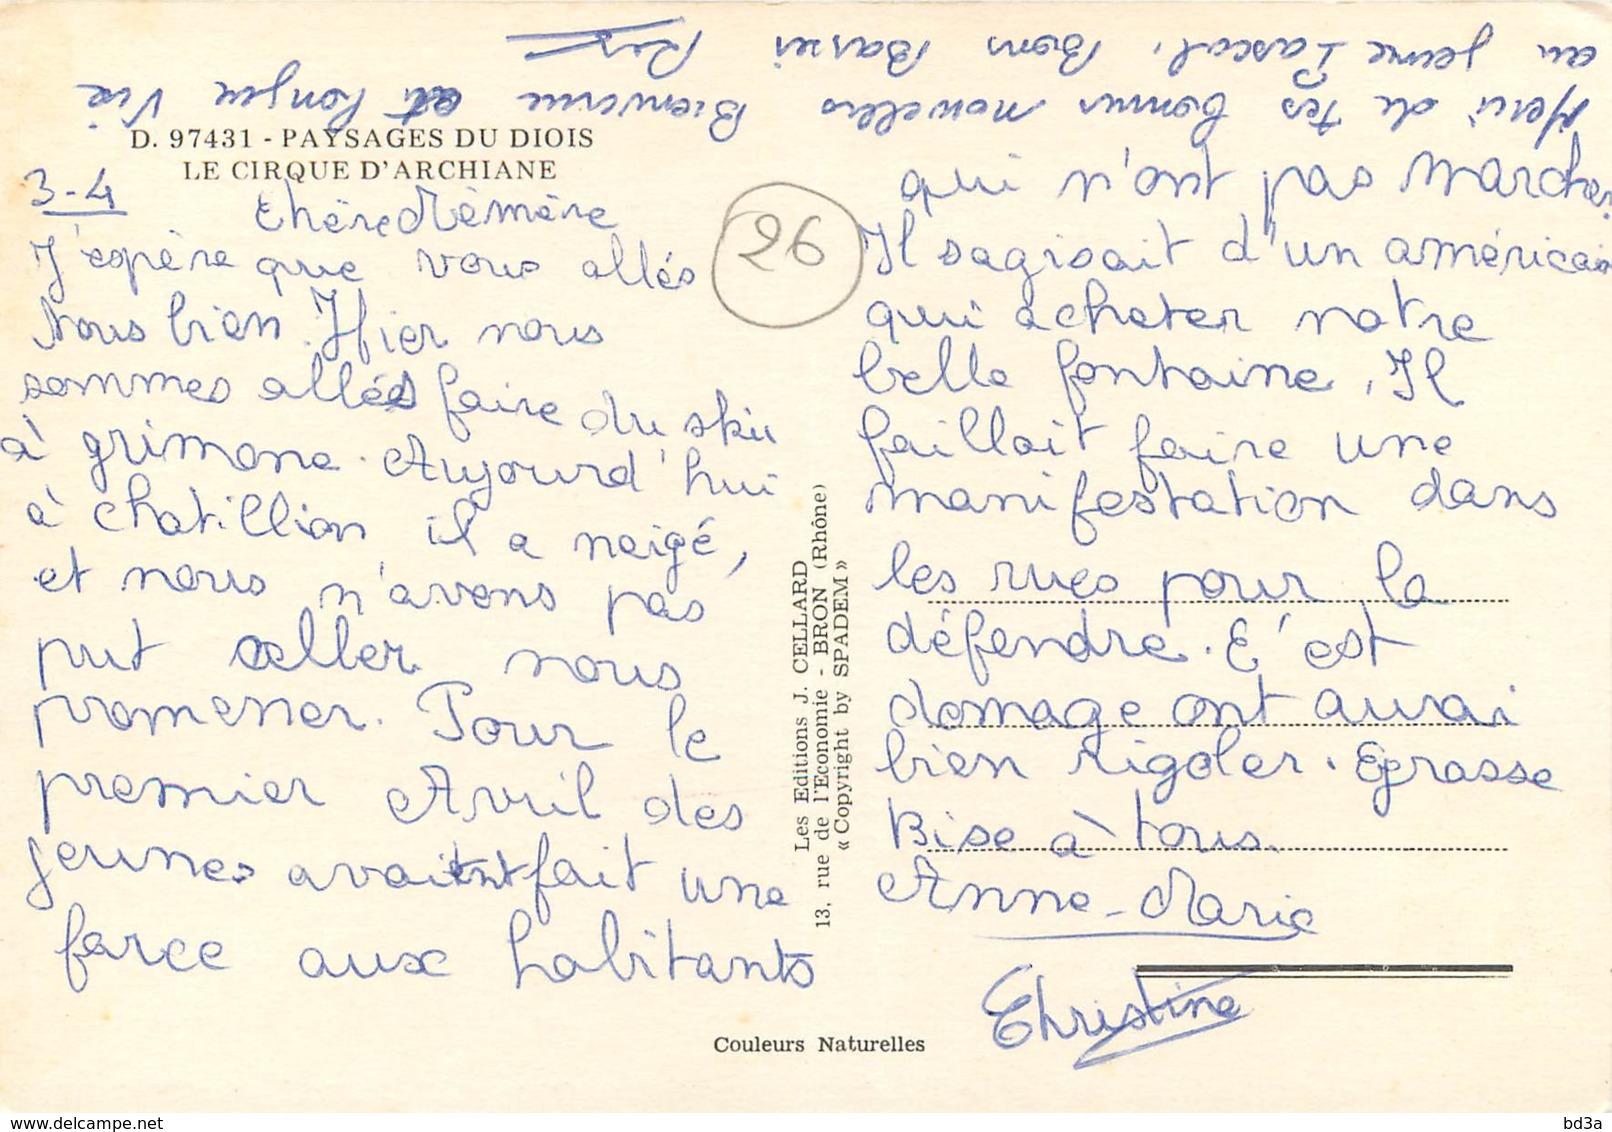 Merci de tes bonnes nouvelles Bienvenue et longue Vie
au jeune Pascal. Bons Baisers
D. 97431 - PAYSAGES DU DIOIS
LE CIRQUE D'ARCHIANE
3-4
Chère Mémère
J'espère que vous allés
Nous bien. Hier nous
sommes allés faire du ski
à grimone. Aujourd'hui
à chatillion il a neigé,
et nous n'avons pas
put aller nous
promener. Pour le
premier Avril des
jeunes avaient fait une
farce aux habitants
26
qui n'ont pas marcher
Il sagisait d'un américain
qui acheter notre
belle fontaine. Il
faillait faire une
manifestation dans
les rues pour la
défendre. C'est
domage ont aurai
bien rigoler. Grasse
Bise à tous.
Anne-Marie
Christine
Les Editions J. CELLARD
13, rue de l'Economie - BRON (Rhône)
« Copyright by SPADEM »
Couleurs Naturelles
bd3a